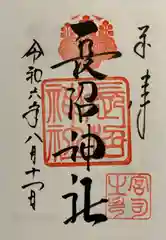 奉拝
長沼神社
令和六年八月十一日
長沼
神社
宮司
之印